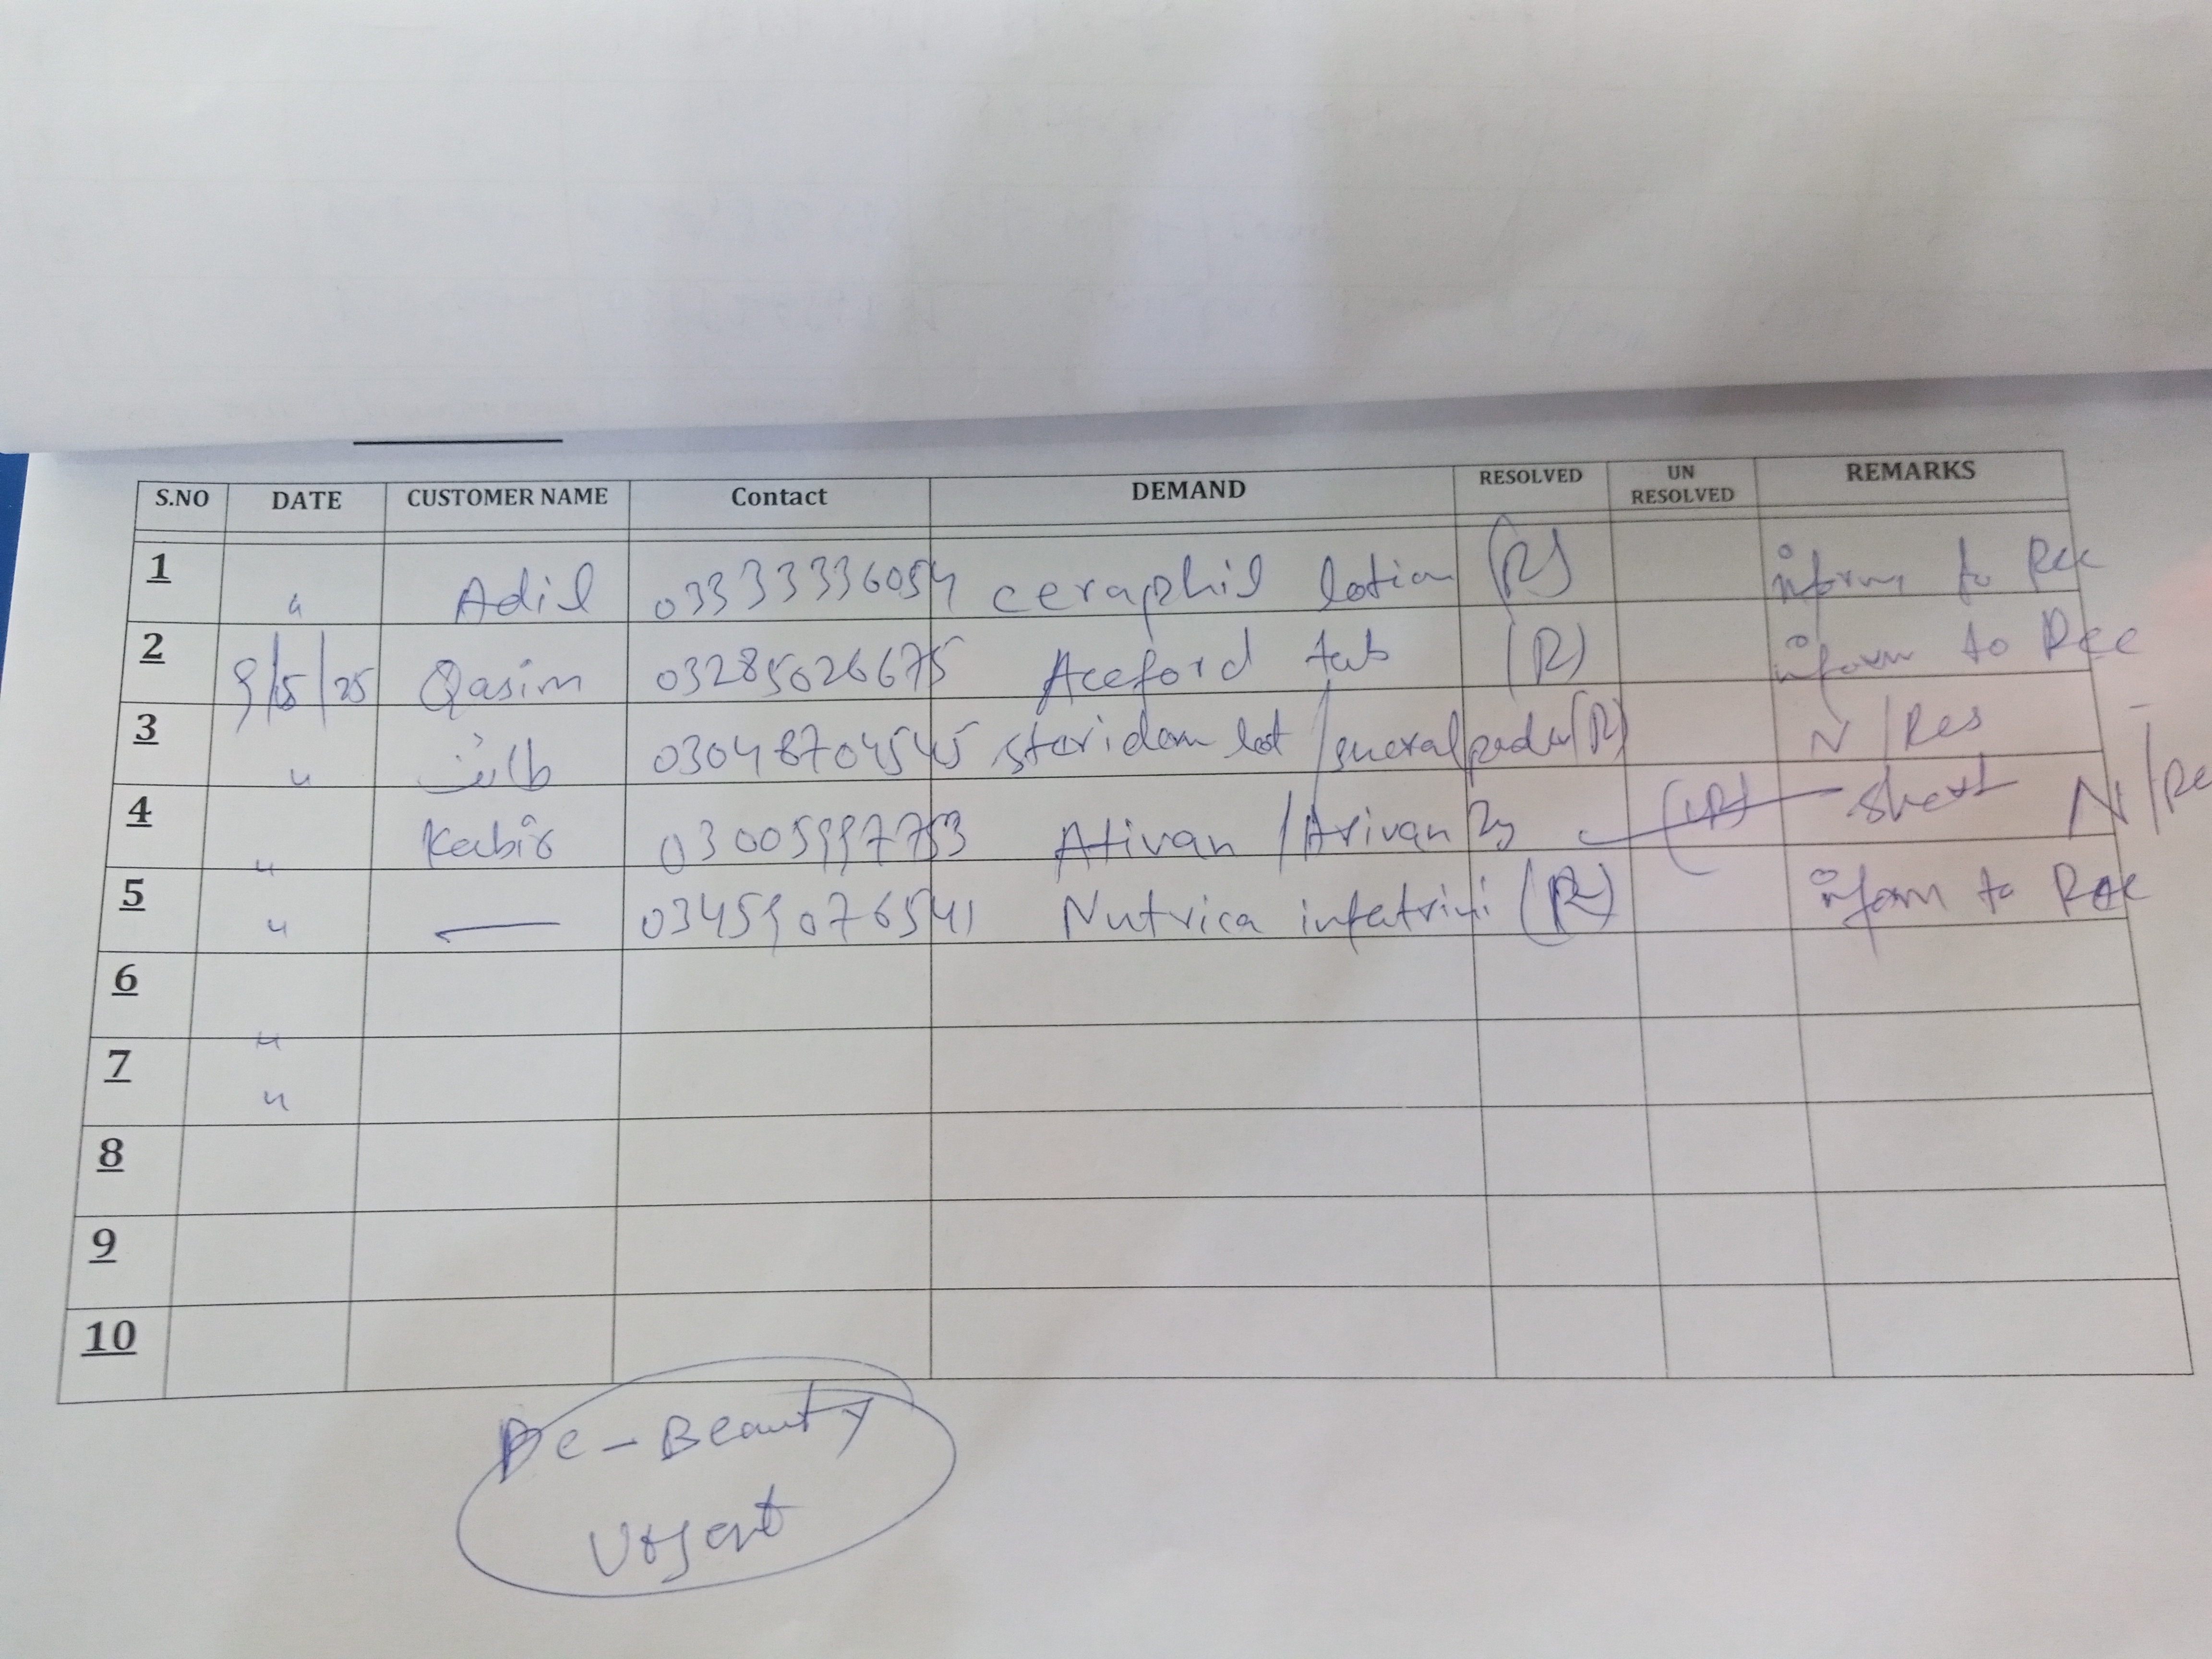 S.NO DATE CUSTOMER NAME Contact DEMAND RESOLVED UN RESOLVED REMARKS
1 " Adil 03333336054 ceraphil lotion (R) inform to Rec
2 9/5/25 Qasim 03285026675 Aceford tab (R) inform to Rec
3 " 03048704545 steridom lot / (R) N/Res
4 " Kabir 03005997753 Ativan / Arivan 2g (UR) short N/Re
5 " — 03459076541 Nutrica infatrini (R) inform to Rec
6 "
7 "
8
9
10
De-Beauty
Urgent